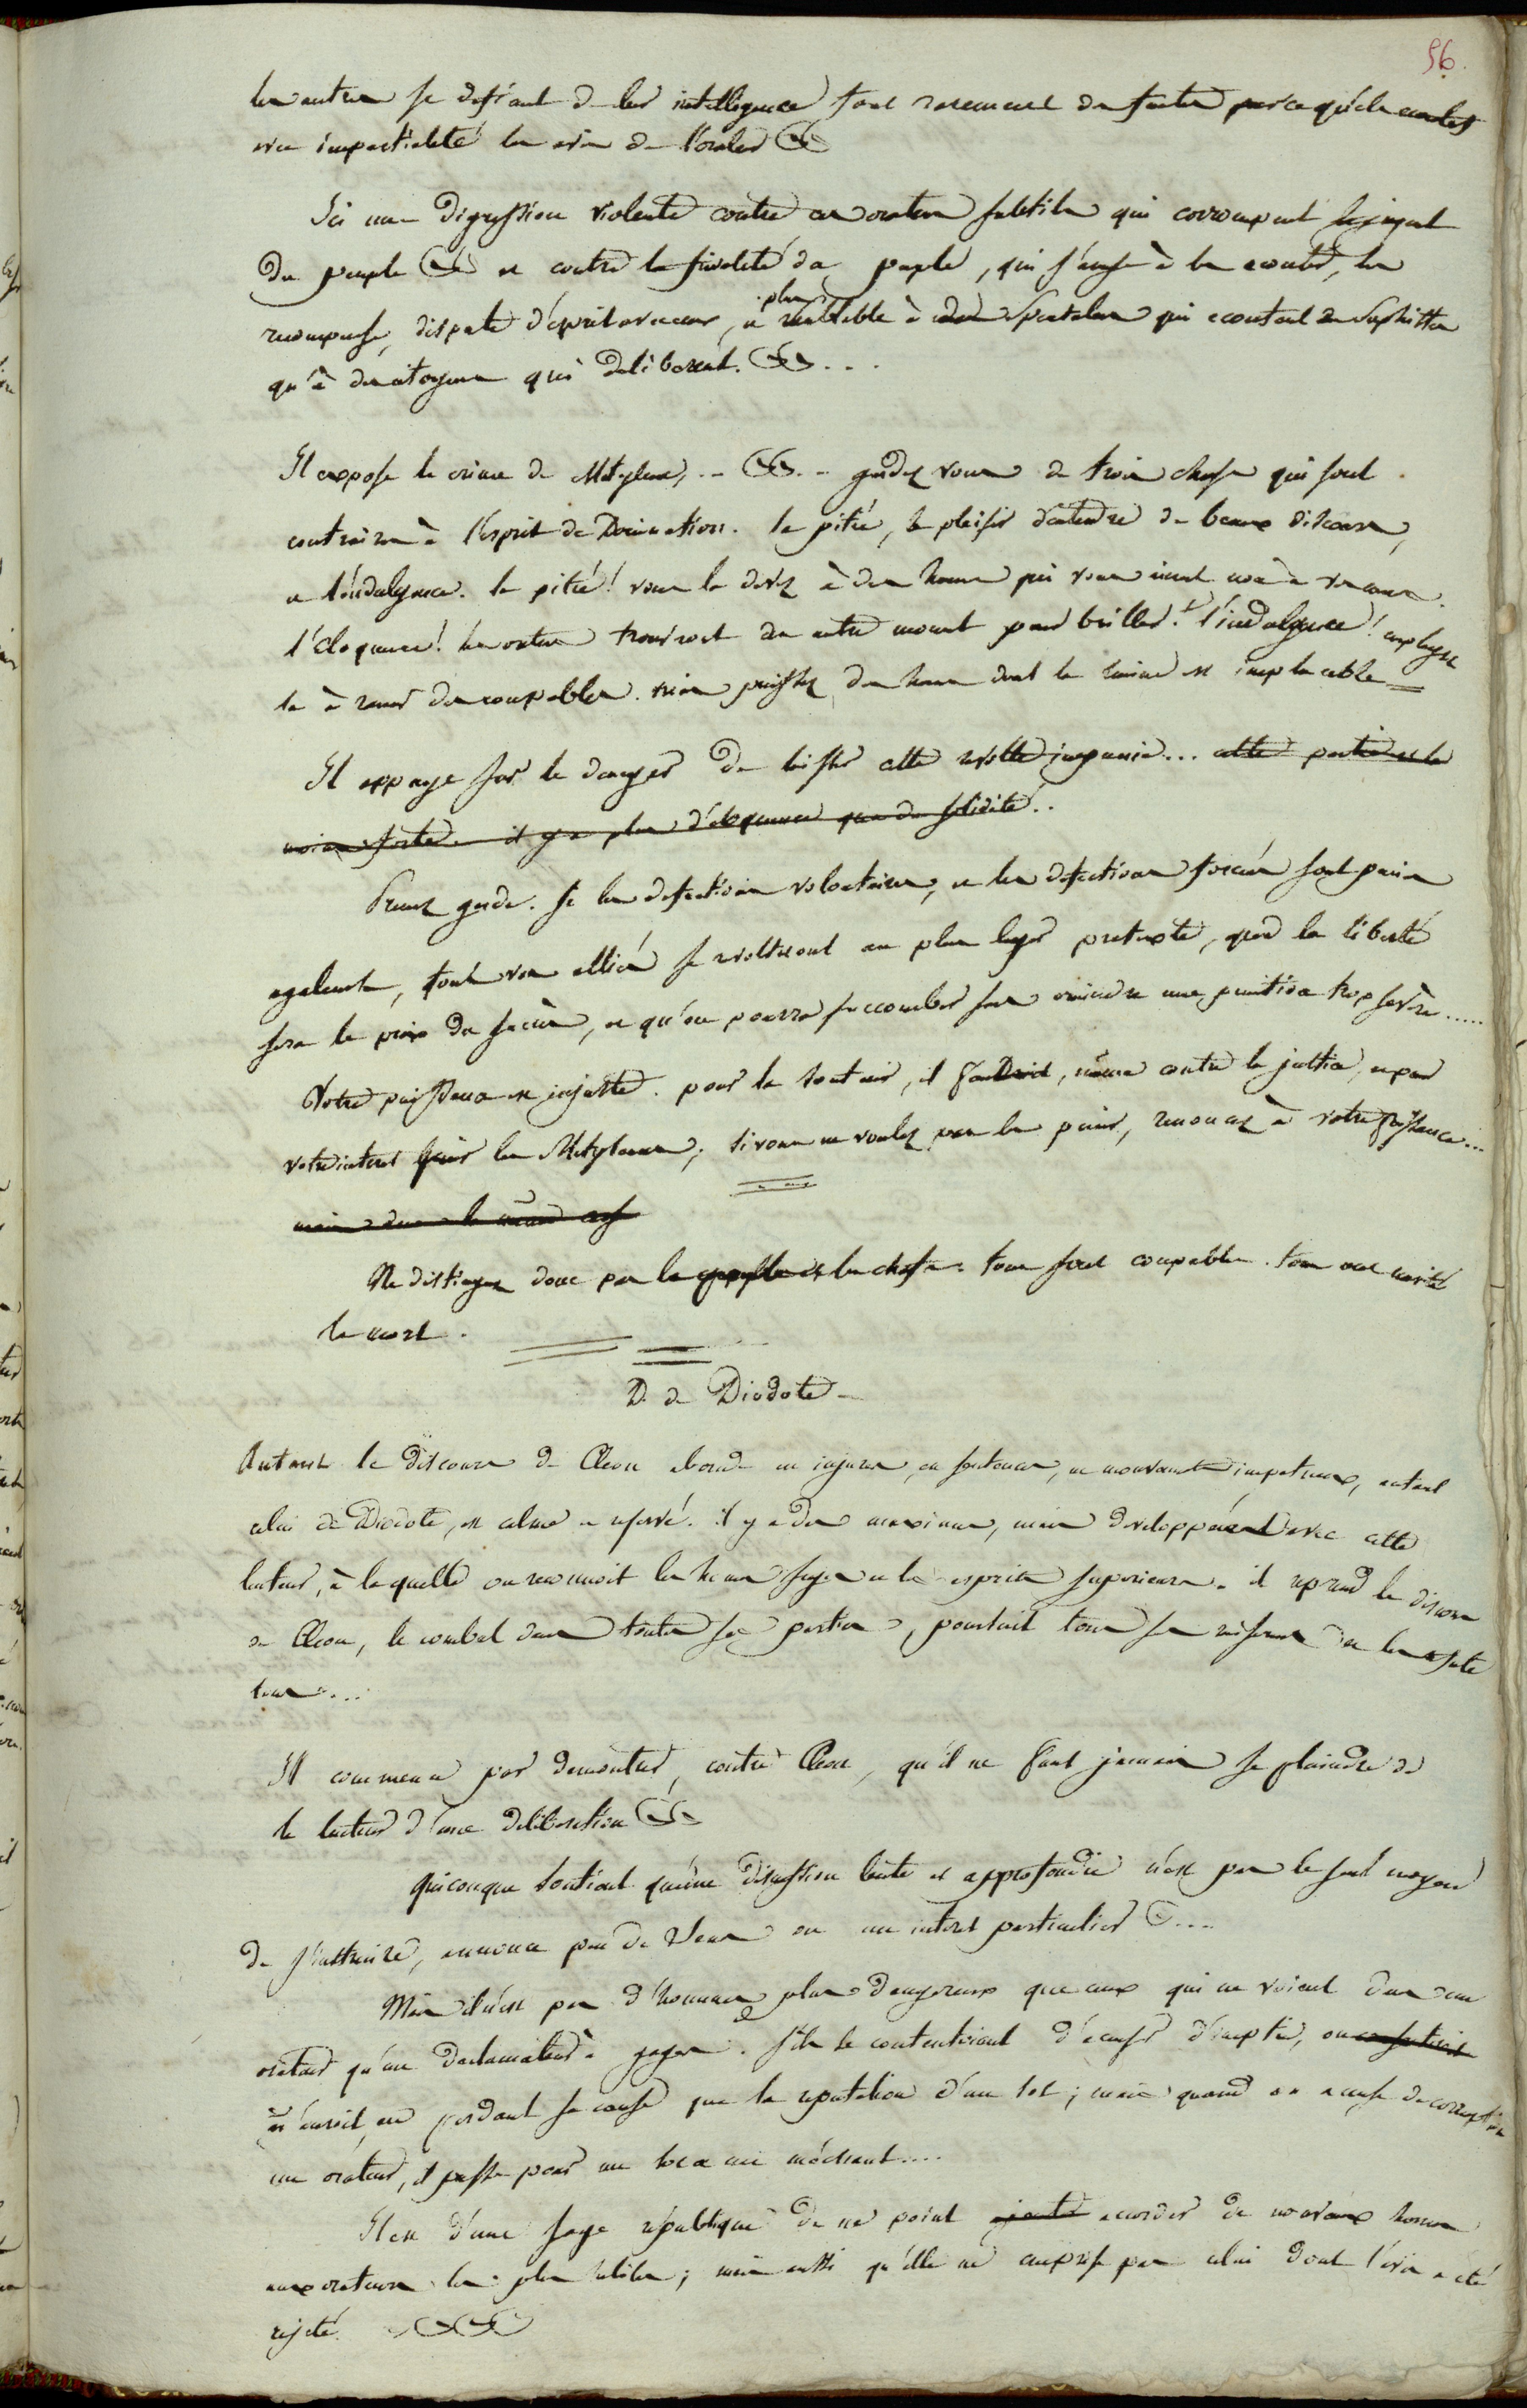 56.
les autres se defiant de leur intelligence font rarement des fautes parce qu'ils ecoutent
avec impartialité les avis de l'orateur
Ici une Digression violente contre ces orateurs subtils qui corrompent le jugement
du peuple et contre la frivolité du peuple, qui s'amuse à les ecouter, les
recompense, dispute d'esprit avec eux, et plus semblable à des spectateurs qui ecoutent des sophistes
qu'à des citoyens qui deliberent. ...
Il expose le crime de Mitylene, .. .. gardez vous de trois choses qui sont
contraires à l'esprit de Domination. la pitié, le plaisir d'entendre de beaux discours,
et l'indulgence. la pitié! vous la devez à des hommes qui vous
l'éloquence! les orateurs trouveront un autre moment pour briller. l'indulgence! employez
la à ramener des coupables. mais punissez des hommes dont la haine est implacable
Il appuye sur le danger de laisser cette revolte impunie... cette partie est la
moins forte. il y a plus d'éloquence que de solidité..
Prenez garde. Si les defections volontaires, et les defections forcées sont punies
egalement, tous vos alliés se revolteront au plus leger pretexte, quand la liberté
sera le prix du succès, et qu'on pourra succomber sans craindre une punition trop sévère.....
Votre puissance est injuste. pour la soutenir, il faudroit, même contre la justice, et par
votre interet punir les Mityleniens; si vous ne voulez pas les punir, renoncez à votre puissance...
mais dans le même
Ne distinguez donc pas le peuple et les chefs. tous sont coupables. tous ont merité
la mort.
D. de Diodote
Autant le discours de Cleon abonde en injures, en sentences, en mouvements impetueux, autant
celui de Diodote, est calme et reservé. il y a des maximes, mais developpées avec cette
lenteur, à laquelle on reconnoit les hommes sages et les esprits superieurs. il reprend le discours
de Cleon, le combat dans toutes ses parties, poursuit tous ses raisonnemens et les refute
tous ...
Il commence par demontrer, contre Cleon, qu'il ne faut jamais se plaindre de
la lenteur d'une deliberation
Quiconque soutient qu'une discussion lente et approfondie n'est pas le seul moyen
de s'instruire, annonce peu de sens ou un interet particulier ....
Mais il n'est pas d'hommes plus dangereux que ceux qui ne voient dans un
orateur qu'un declamateur à gages. S'ils se contentoient d'accuser d'ineptie, on
n'auroit, en perdant sa cause que la reputation d'un sot; mais quand on accuse de corruption
un orateur, il passe pour un sot et un méchant....
Il est d'une sage république de ne point ajouter accorder de nouveaux honneurs
aux orateurs les plus habiles; mais aussi qu'elle ne meprise pas celui dont l'avis a été
rejeté.